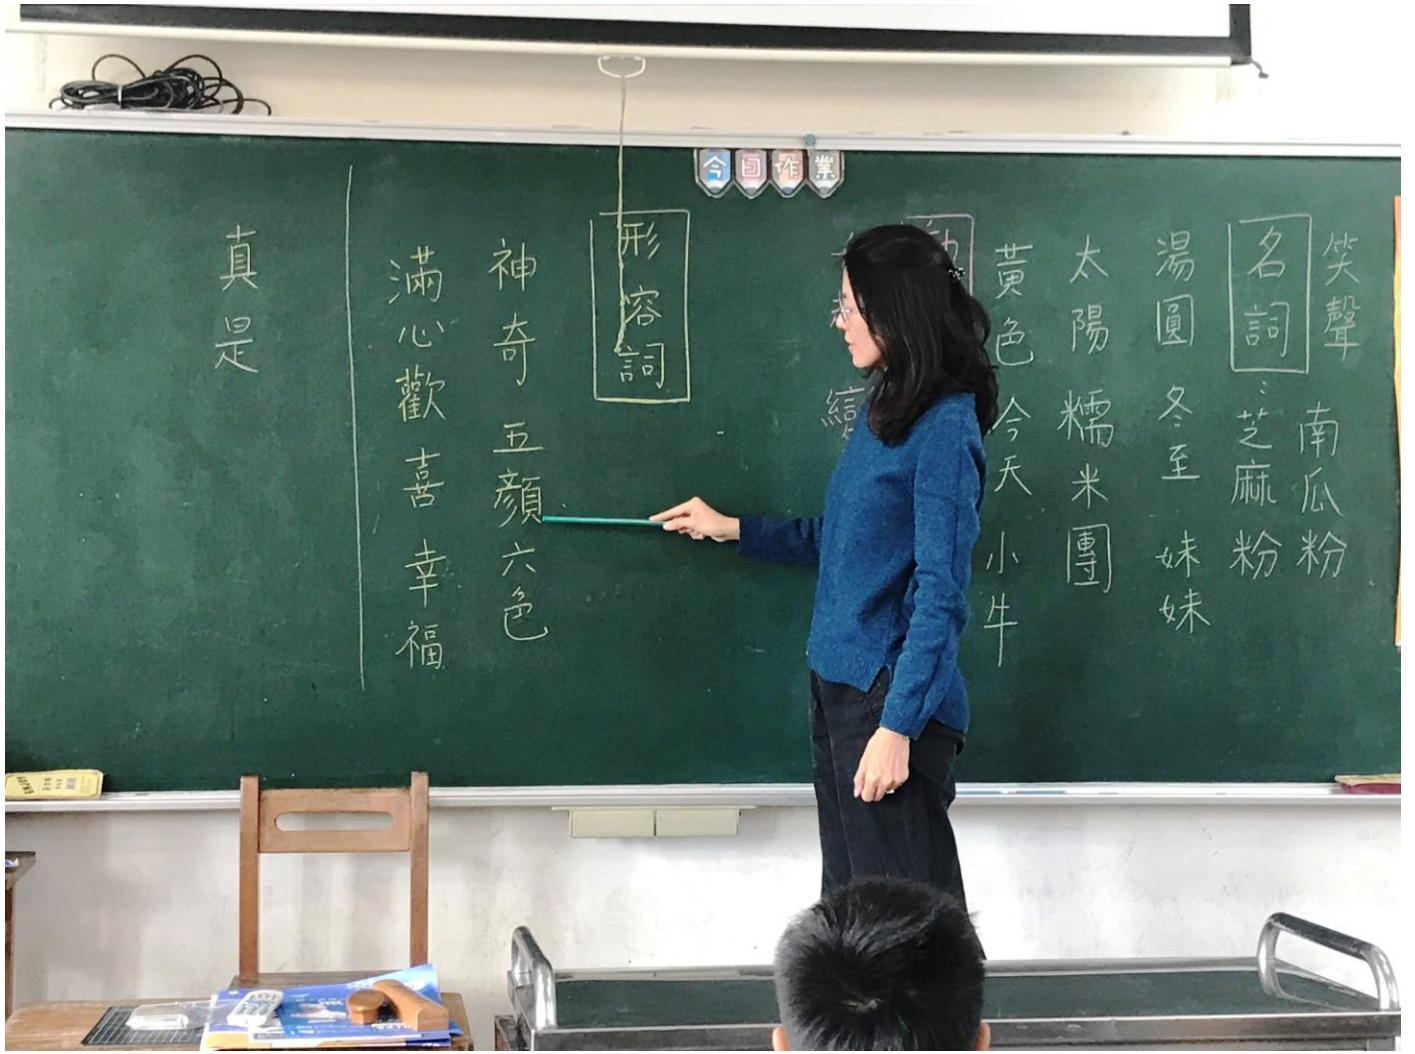 今日作業
笑聲 南瓜粉
名詞：芝麻粉
湯圓 冬至 妹妹
太陽 糯米團
黃色 今天 小牛
形容詞
神奇 五顏六色
滿心歡喜 幸福
真是